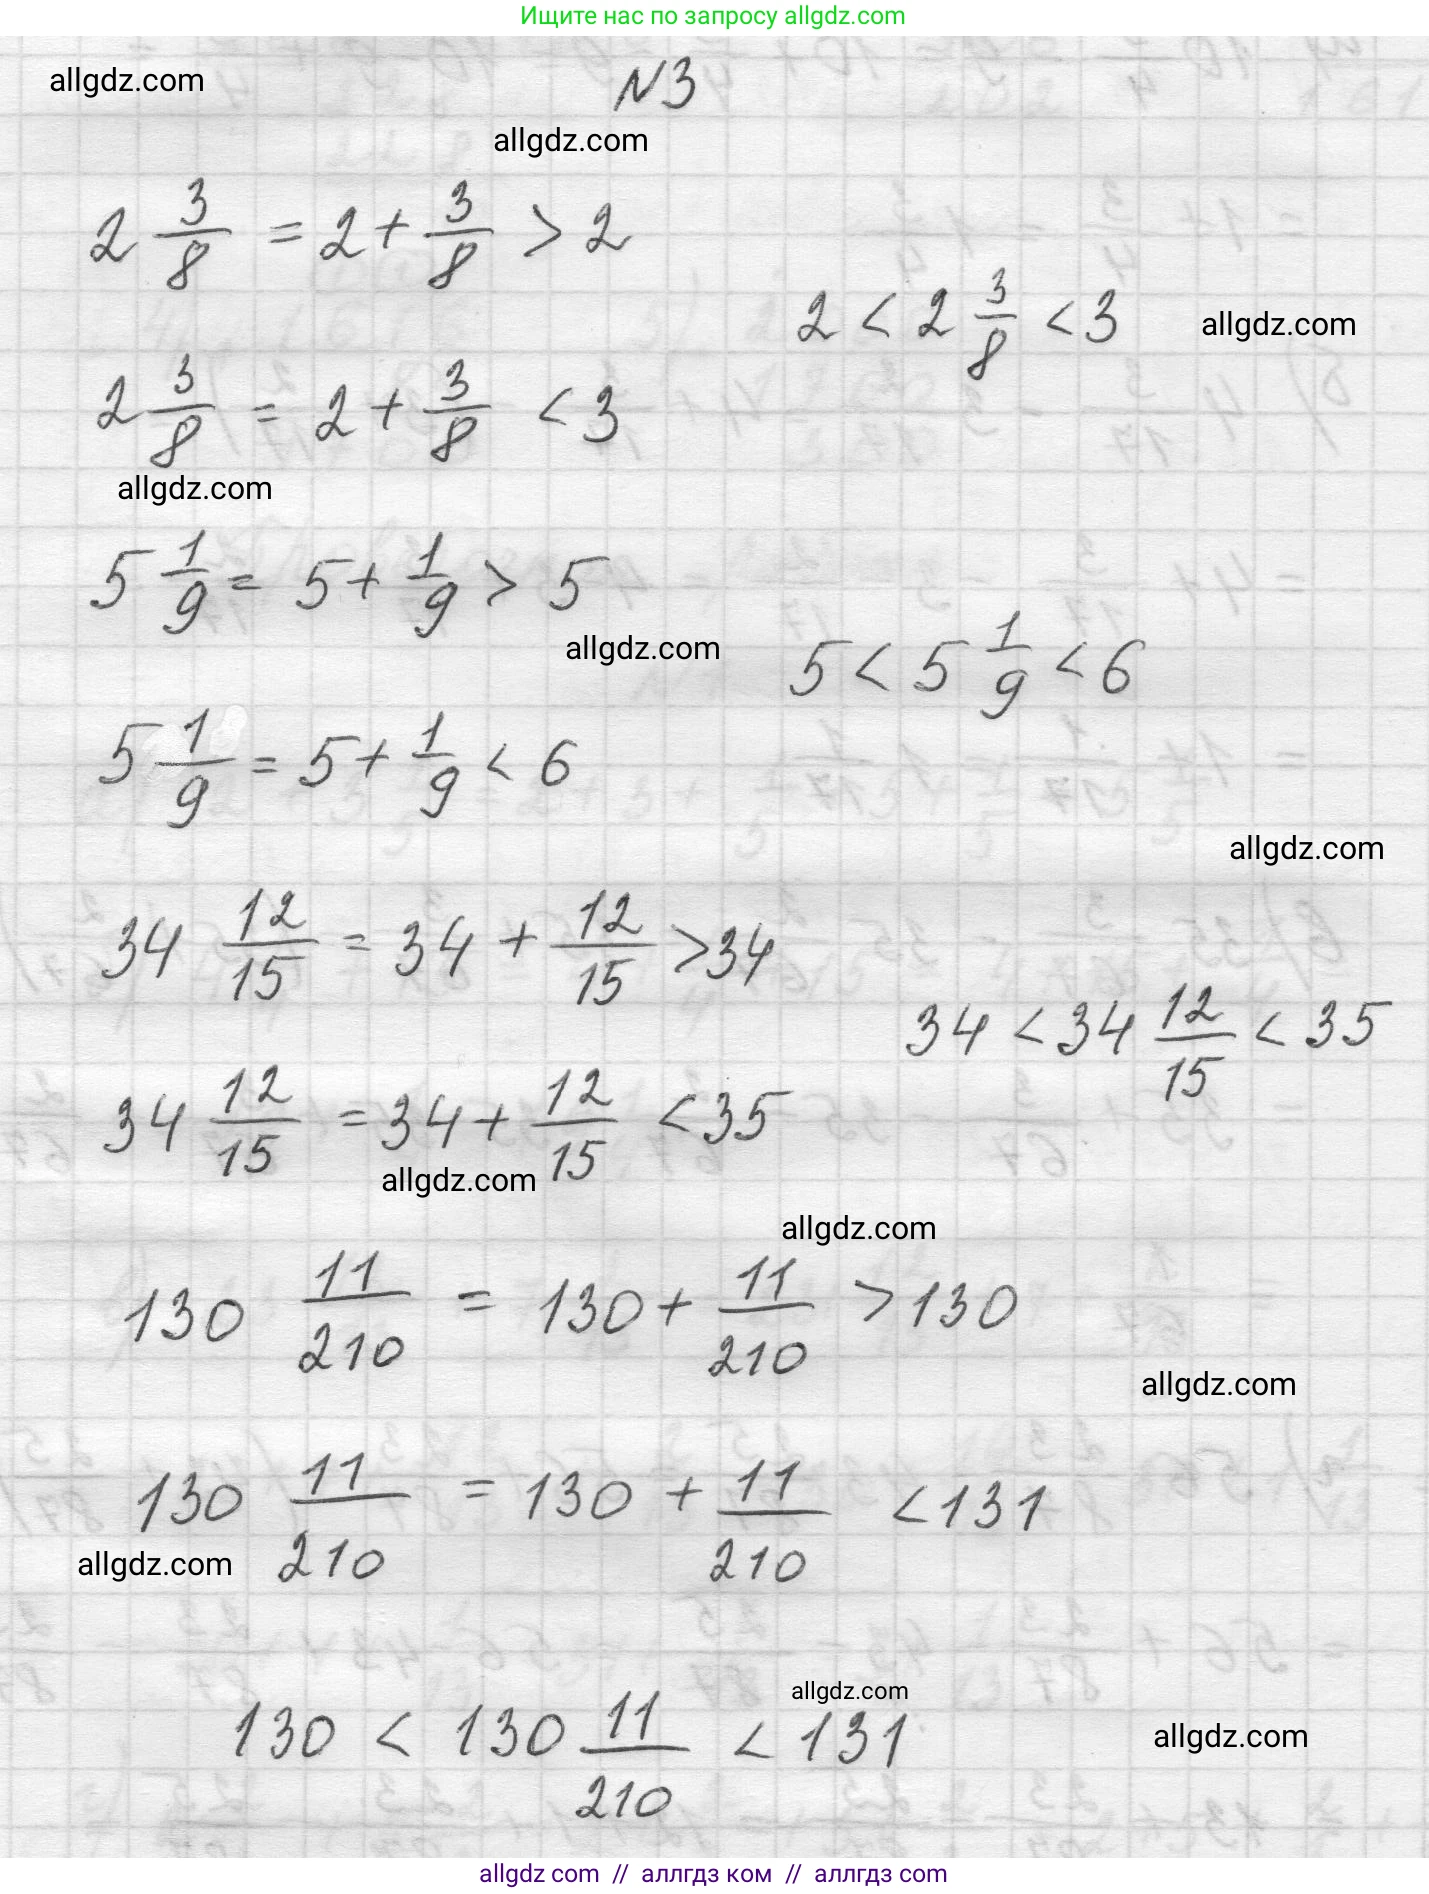 Ищите нас по запросу allgdz.com
allgdz.com
N3
allgdz.com
2 3/8 = 2 + 3/8 > 2
2 < 2 3/8 < 3
allgdz.com
2 3/8 = 2 + 3/8 < 3
allgdz.com
5 1/9 = 5 + 1/9 > 5
allgdz.com
5 < 5 1/9 < 6
5 1/9 = 5 + 1/9 < 6
allgdz.com
34 12/15 = 34 + 12/15 > 34
34 < 34 12/15 < 35
34 12/15 = 34 + 12/15 < 35
allgdz.com
allgdz.com
130 11/210 = 130 + 11/210 > 130
allgdz.com
130 11/210 = 130 + 11/210 < 131
allgdz.com
allgdz.com
130 < 130 11/210 < 131
allgdz.com
allgdz.com // аллгдз ком // аллгдз.com